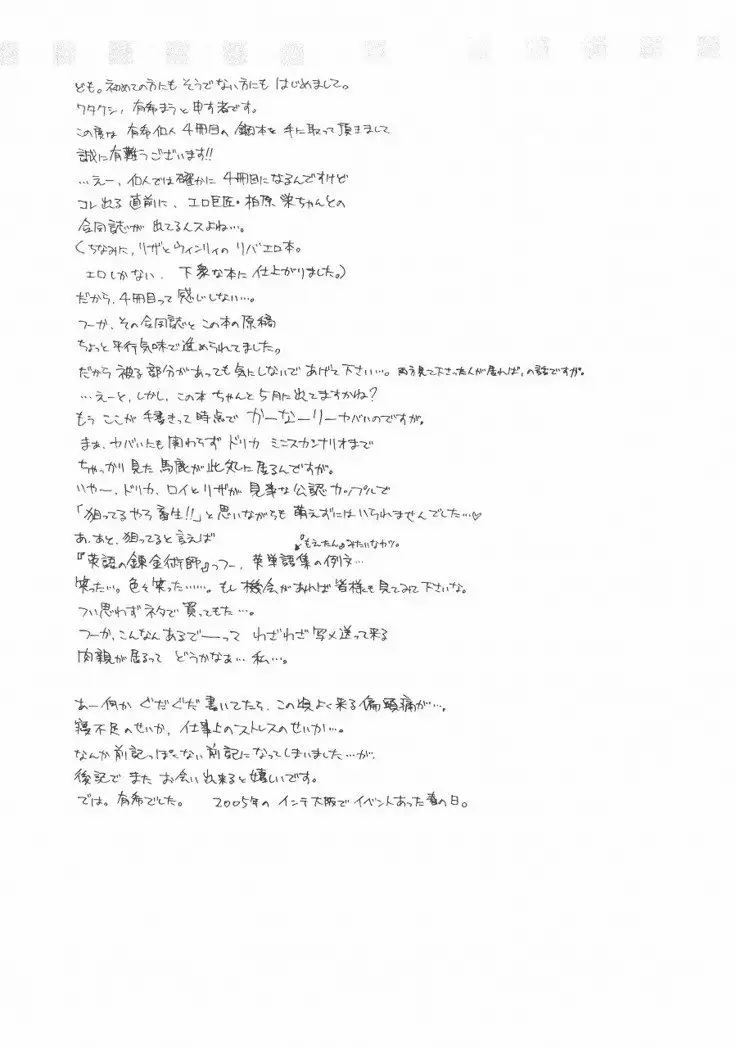 ども。初めての方にも そうでない方にも はじめまして。
ワタクシ、有希まうと申す者です。
この度は 有希個人 4冊目の 鋼本を 手に取って頂きまして
誠に有難うございます!!
…えー、個人では確かに 4冊目になるんですけど
コレ出る 直前に、エロ巨匠・柏原 栄ちゃんとの
合同誌が 出てるんスよね…。
(ちなみに、リザとウィンリィの リバエロ本。
エロしかない、下品な本に 仕上がりました。)
だから、4冊目って 感じしない…。
つーか、その合同誌と この本の原稿
ちょっと平行気味で進められてました。
だから 被る部分があっても 気にしないで あげて下さい…。両方見て下さった人が居れば、の話ですが。
…えーと、しかし、この本 ちゃんと 5月に出てますかね?
もう ここが 手書きって時点で かーなーりー ヤバいのですが。
まぁ、ヤバいにも関わらず ドリカ ミニスカシナリオまで
ちゃっかり 見た 馬鹿が 此処に 居るんですが。
いやー、ドリカ、ロイとリザが 見事な公認カップルで
「狙ってるやろ畜生!!」と思いながらも 萌えずにはいられませんでした…♡
あ、あと、狙ってると言えば
『もえたん』みたいなヤツ。
『英語の錬金術師』っつー、英単語集の例文…
笑った…。色々笑った……。もし機会があれば 皆様も見てみて下さいな。
つい思わず ネタで 買ってもた…。
つーか、こんなんあるでーって わざわざ 写メ送って来る
肉親が居るって どうかなぁ… 私…。
あー何か ぐだぐだ 書いてたら、この頃よく来る偏頭痛が…。
寝不足のせいか、仕事上のストレスのせいか…。
なんか前記っぽくない 前記になってしまいました…が、
後記で また お会い出来ると嬉しいです。
では。有希でした。 2005年の インテ大阪で イベントあった 春の日。